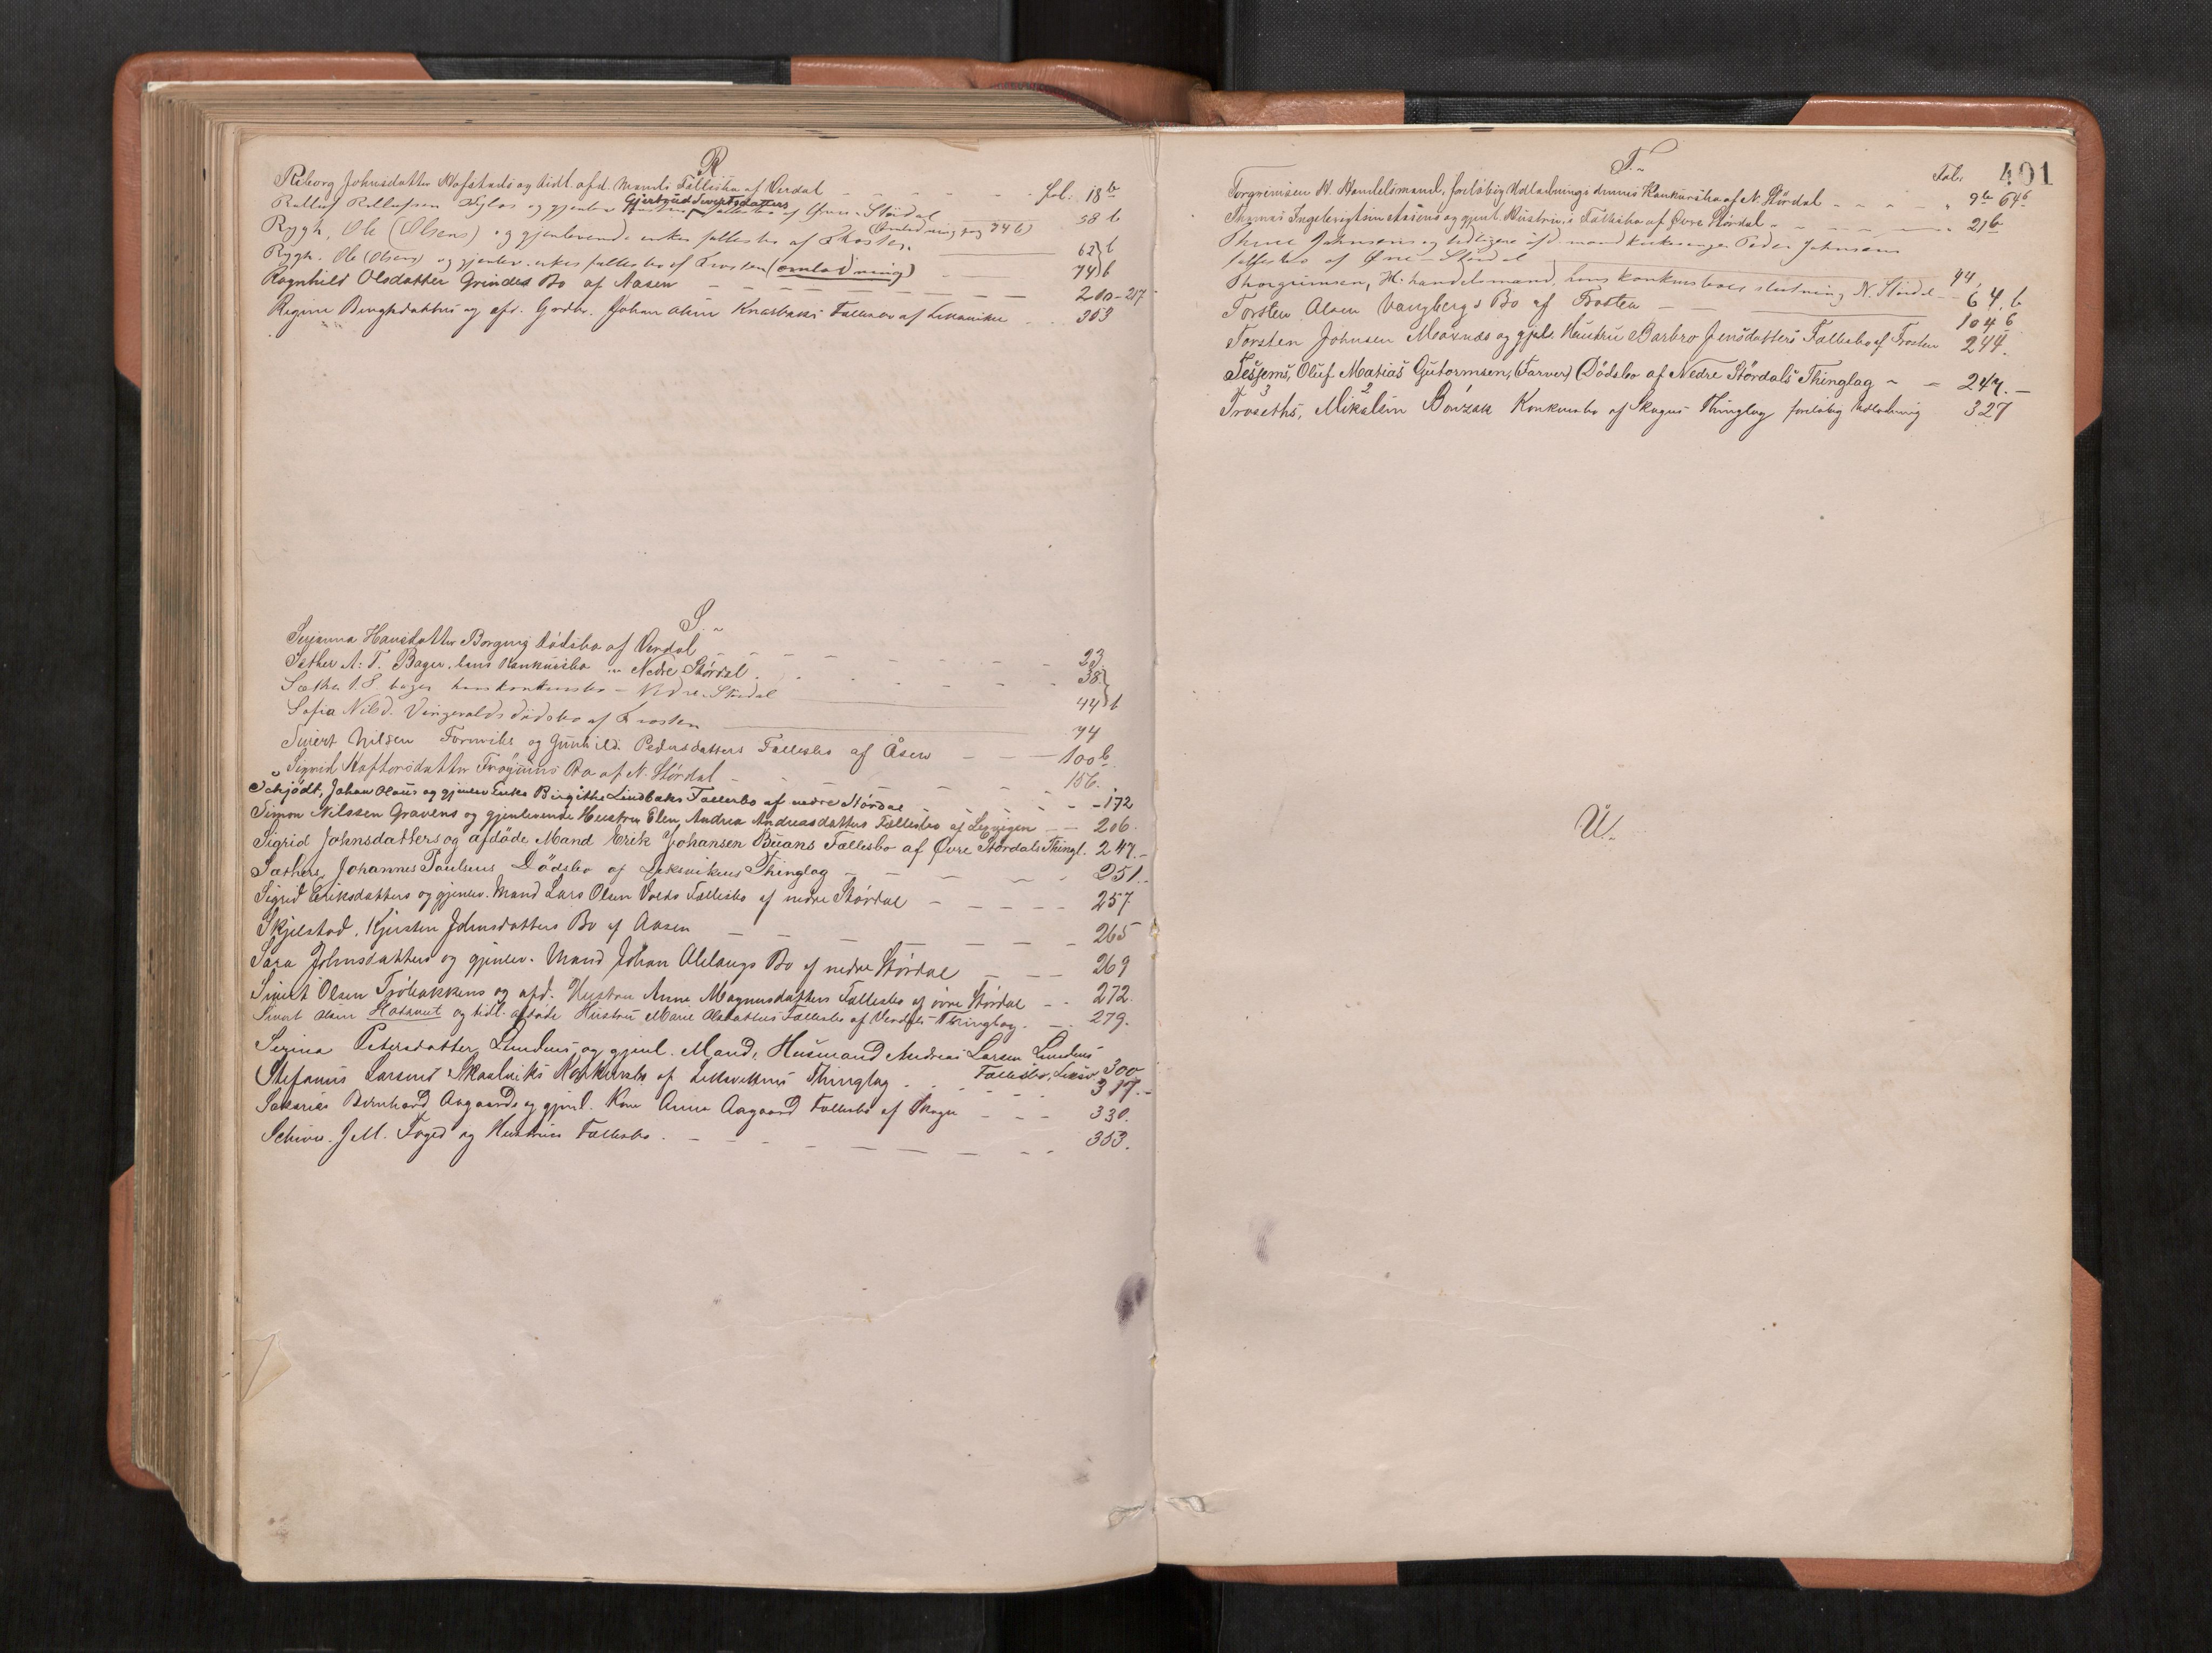 R
Riborg Johnsdatter Hofstads og tidl. afd. Mands Fællesbo af Verdal Fol. 18b
Rollef Rollefsen og gjenlev. Gjertrud Sivertsdatters fællesbo af Øvre Stördal 58 b
Rygh, Ole (Olsens) og gjenlevende enkes fællesbo af Frosten. (Omlodning pag 74 b) 62 b
Rygh. Ole (Olsens) og gjenlev. enkes fællesbo af Frosten (omlodning) 74 b
Ragnhild Olsdatter Grindes Bo af Aasen 210-217
Regine Bengtsdatters og afd. Gaardbr. Johan Knasbaks Fællesbo af Leksviken 303
S.
Serianna Hansdatter Borgens dødsbo af Verdal 23.
Sæther A. T. Bager, hans Konkursbo Nedre Stördal 38
Sæther A. T. bager hans konkursbo - Nedre Stördal 44 b
Sofia Nilsd. Vingevolds dødsbo af Frosten 74
Sivert Nilsen Formviks og Gunhild Pedersdatters Fællesbo af Åsen 100 b
Sigrid Haftorsdatter Fröyums Bo af N. Stördal 156.
Schjødt, Johan Olaus og gjenlev Enke Birgithe Lindbaks Fællesbo af nedre Stördal 172
Simon Nilssen Gravens og gjenlevende Hustru Elen Andrea Andreasdatters Fællesbo af Lexvigen 206.
Sigrid Johnsdatters og afdøde Mand Erik Johansen Buans Fællesbo af Övre Stördals Thingl. 247.-
Sæthers, Johannes Paulsens Dödsbo af Leksvikens Thinglag 251.-
Sigrid Eriksdatters og gjenlev. Mand Lars Olsen Volds Fællesbo af nedre Stördal 257
Skjelstad, Kjersten Johnsdatters Bo af Aasen 265
Sara Johnsdatters og gjenlev. Mand Johan Alelangs Bo af nedre Stördal 269
Sivert Olsen Tröbakkens og afd. Hustru Anne Magnusdatters Fællesbo af övre Stördal 272.
Sivert Olsen og tidl. afdöde Hustru Marie Olsdatters Fællesbo af Verdals Thinglag. 279.
Serina Petersdatter Lundens og gjenl. Mand, Husmand Andreas Larsen Lundens
Fællesbo, Leksv 300
Stefanus Larsens Skaalviks Konkursbo af Leksvikens Thinglag 317.-
Sakarias Bernhard Aagaards og gjenl. Kone Anna Aagaard Fællesbo af Skogn 330.
Schive. J. M. Foged og Hustrues Fællesbo. 353.
T.
Fol. 401
Torgrimsen H. Handelsmand, foreløbig Udlodnings dennes Konkursbo af N. Stördal 9b 64b
Thomas Ingebrigtsen og gjenl. Hustrues Fællesbo af Øvre Stördal 21b
Johnsens og tidligere afd. mand Peder Johnsens
fællesbo af Øvre Stördal 44,
Thorgrimsen, H. handelsmand, hans konkursboes slutning N. Stördal 64. b
Torsten Olsen Vangbergs Bo af Frosten 104 b
Torsten Johnsen Moxnæs og gjenl. Hustru Barbro Jensdatters Fællesbo af Frosten 244.
Tessems, Oluf Matias Gutormsen, (Farver) Dödsbo af Nedre Stördals Thinglag 247.-
Troseths, Mikal Konkursbo af Skogns Thinglag foreløbig Udlodning 327
U.